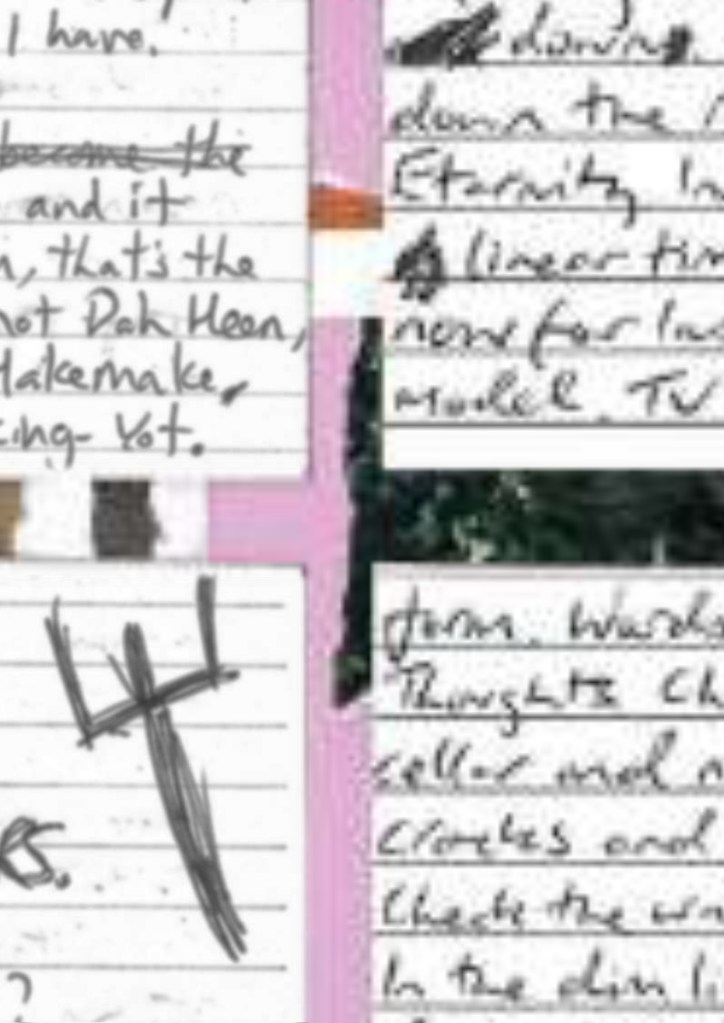 I have.
become the
and it
that's the
not Dah Heen,
Makemake,
king-Yot.
down
down the
Eternity In
linear tim
now for
Model. TV
?
form. Words
Thoughts Ch
cellar and
cracks and
Check the
In the dim li